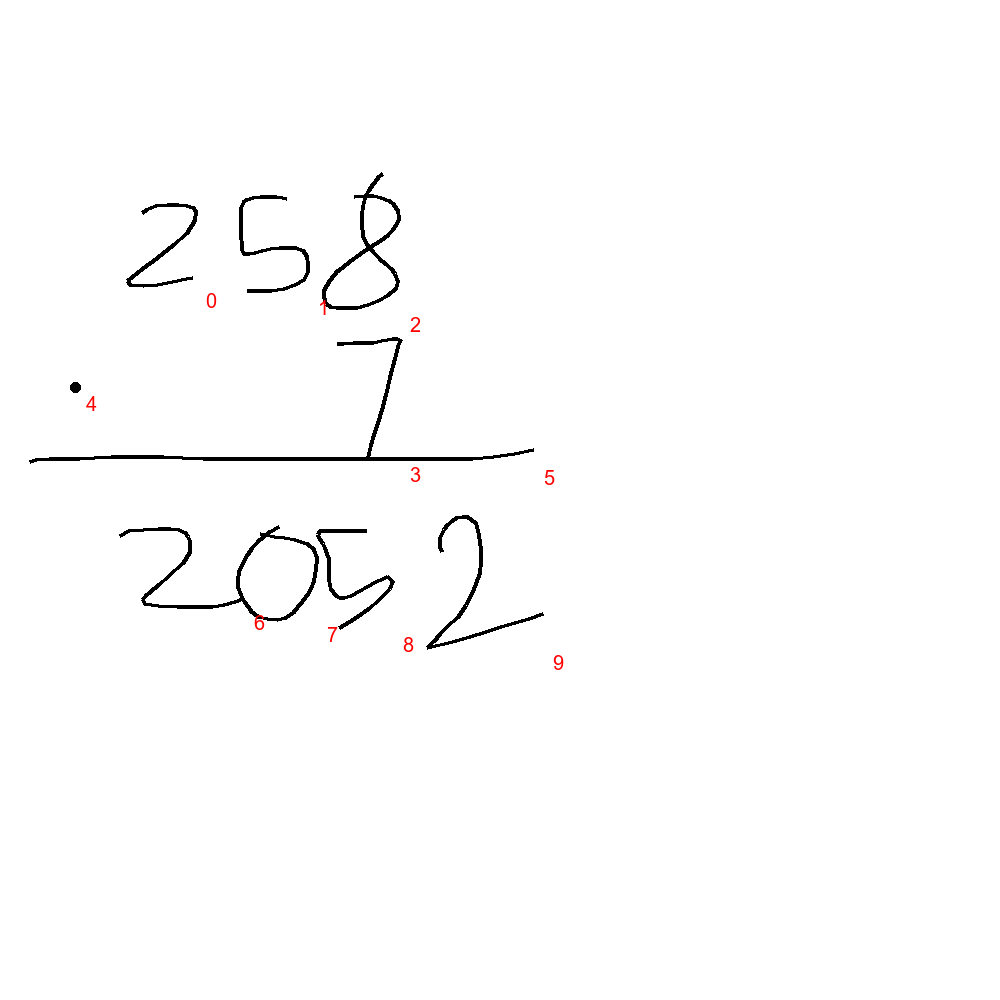 258
0 1 2
7
·
4
3 5
2052
6 7 8 9